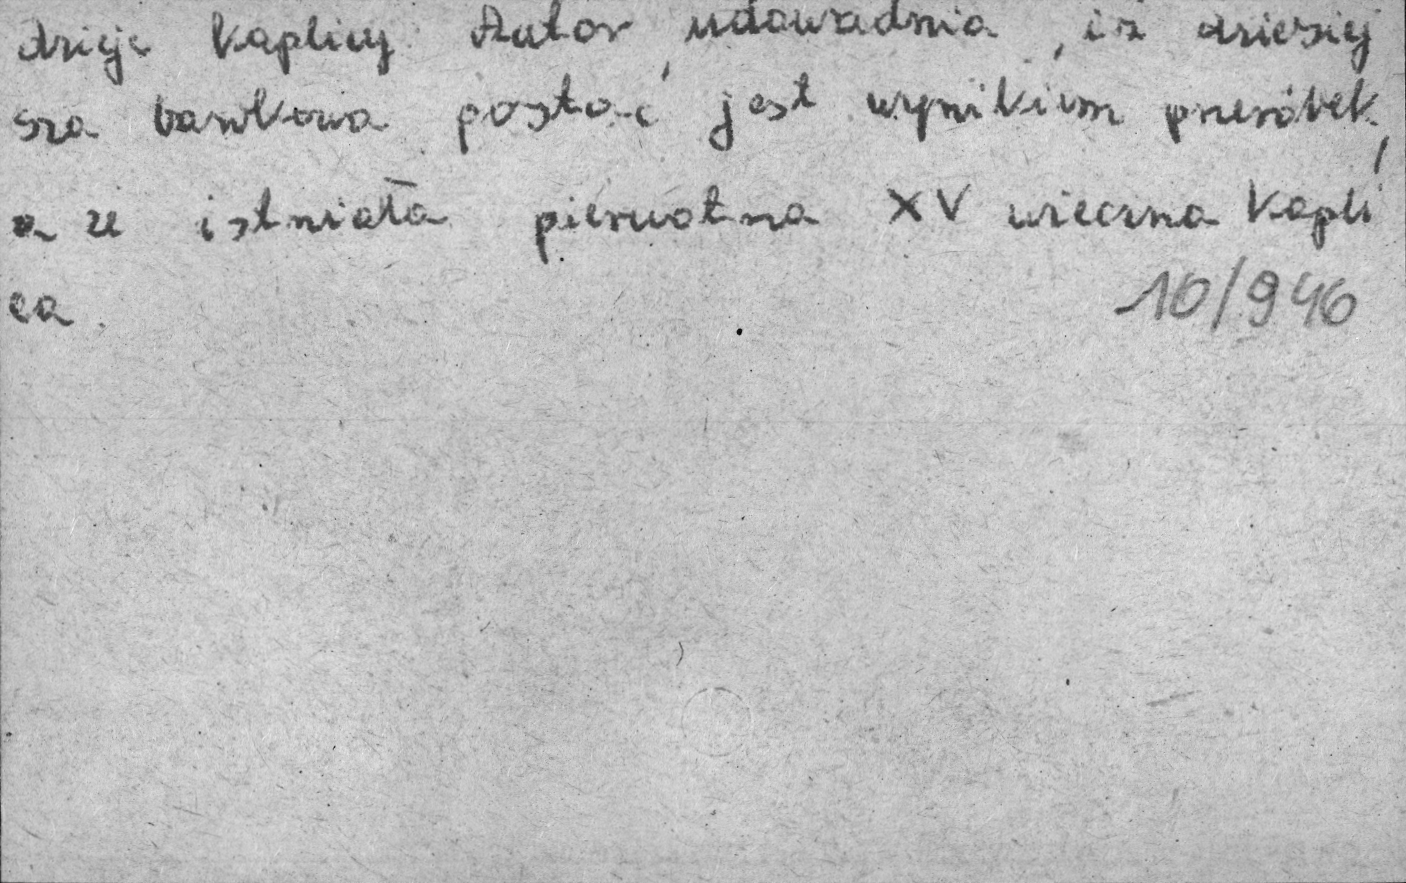 dzieje kaplicy. Autor udowadnia, iż dzisiej
sza barokowa postać jest wynikiem przeróbek,
a że istniała pierwotna XV wieczna kapli
ca.
10/946